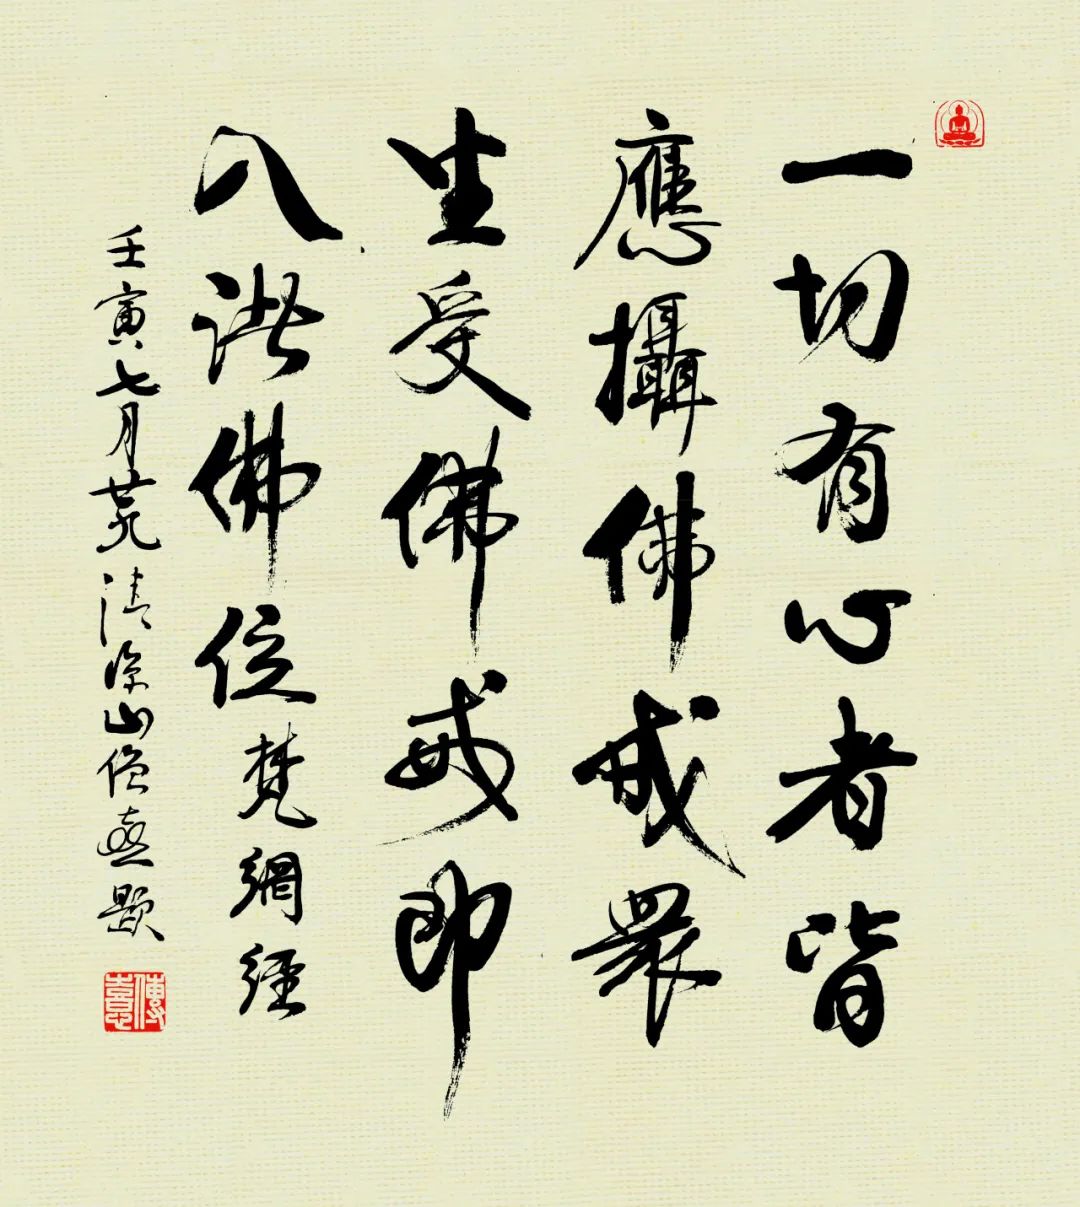 一切有心者皆
應攝佛戒眾
生受佛戒即
入諸佛位梵網經
壬寅七月廿九清凉山僧憙題
傳憙